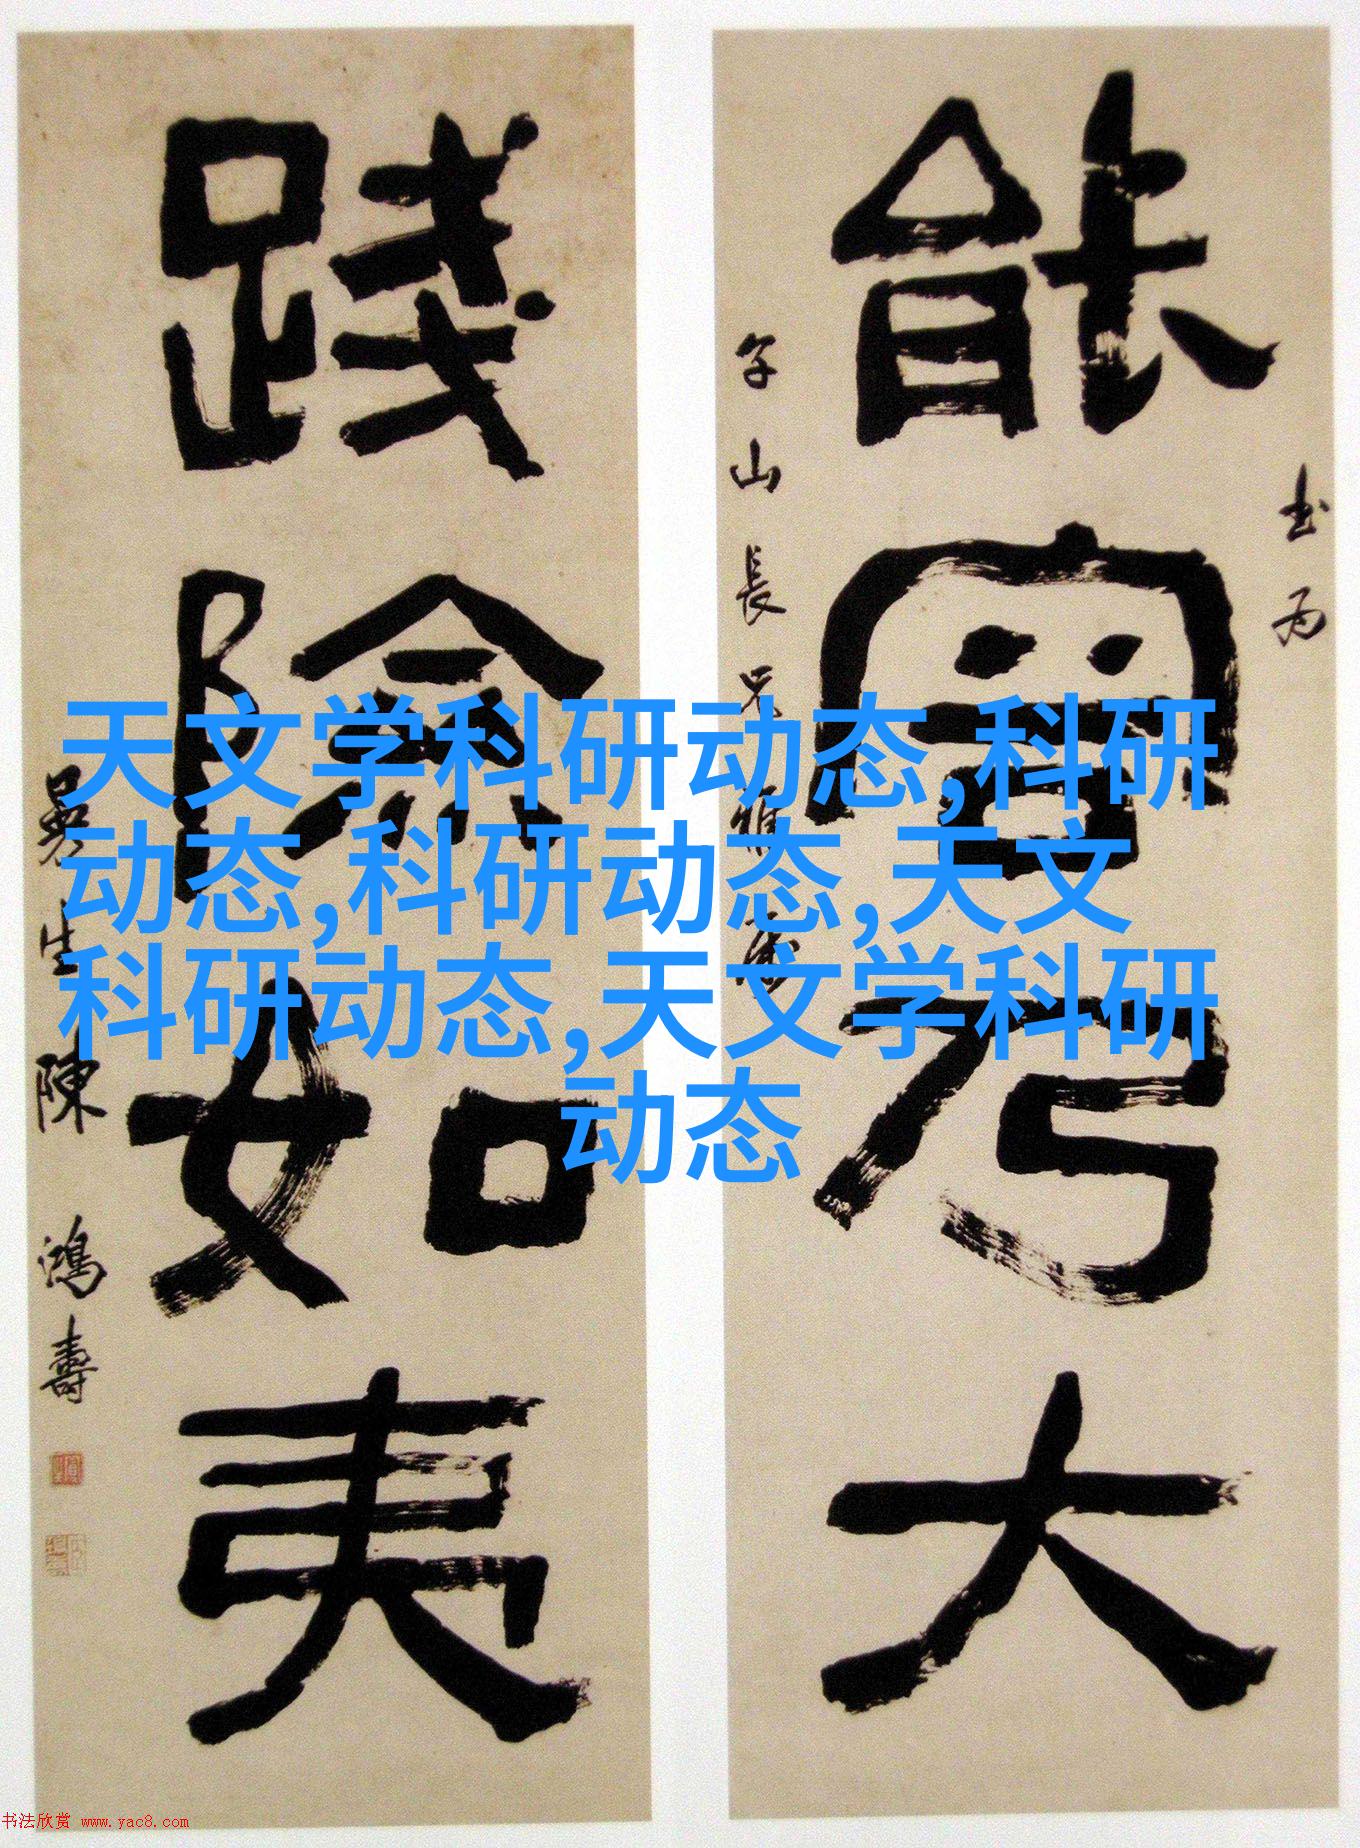 书为
能容乃大
山長兄雅
踐險如夷
曼生陳鴻壽
天文学科研动态,科研
动态,科研动态,天文
科研动态,天文学科研
动态
书法欣赏 www.yac8.com